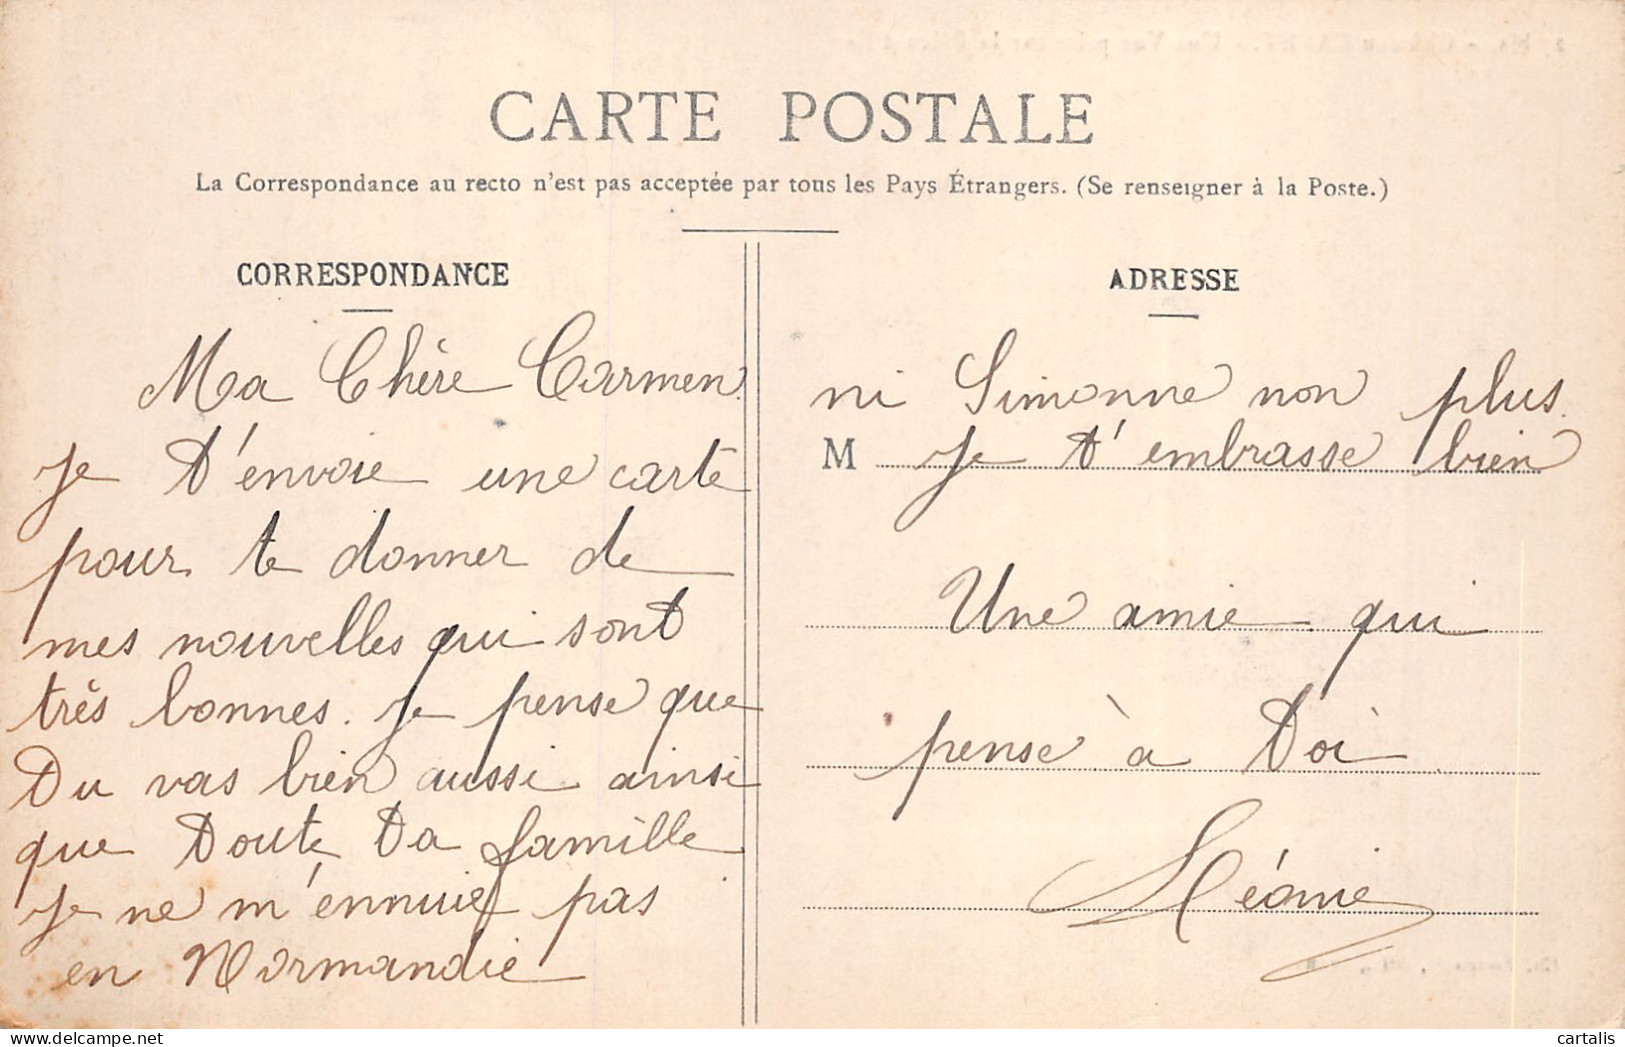 CARTE POSTALE
La Correspondance au recto n'est pas acceptée par tous les Pays Étrangers. (Se renseigner à la Poste.)
CORRESPONDANCE
Ma Chère Carmen
je t'envoie une carte
pour te donner de
mes nouvelles qui sont
très bonnes. je pense que
tu vas bien aussi ainsi
que toute ta famille
je ne m'ennuie pas
en Normandie
ADRESSE
ni Simonne non plus.
M je t'embrasse bien
Une amie qui
pense à toi
Léonie
cartalis